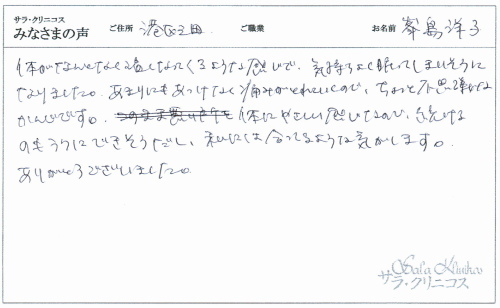 サラ・クリニコス
みなさまの声 ご住所 港区三田 ご職業 お名前 峯島洋子
体がなんとなく温かくなってくるような感じで、気持ちよく眠ってしまいそうに
なりました。あまりにもあっけなく痛みがとれていくので、ちょっと不思議な
かんじです。体にやさしい感じなので、続ける
のもらくにできそうだし、私には合ってるような気がします。
ありがとうございました。
Sala Klinikos
サラ・クリニコス